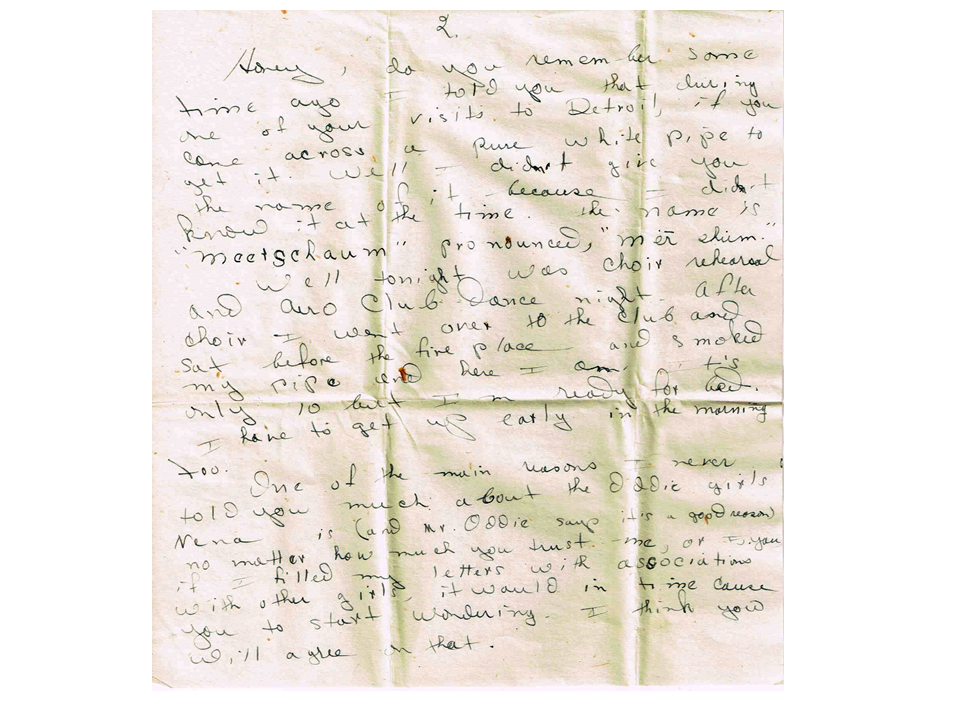 2.
Honey, do you remember some
time ago I told you that during
one of your visits to Detroit, if you
come across a pure white pipe to
get it. Well I didn't give you
the name of it because I didn't
know it at the time. The name is
"meetschaum" pronounced, "mēr shum."
Well tonight was choir rehearsal
and Aero Club Dance night. After
choir I went over to the club and
sat before the fire place and smoked
my pipe and here I am. It's
only 10 but I'm ready for bed.
I have to get up early in the morning
too.
One of the main reasons I never
told you much about the Oddie girls
Nena is (and Mr. Oddie says it's a good reason)
no matter how much you trust me, or I, you
if I filled my letters with associations
with other girls, it would in time cause
you to start wondering. I think you
will agree on that.